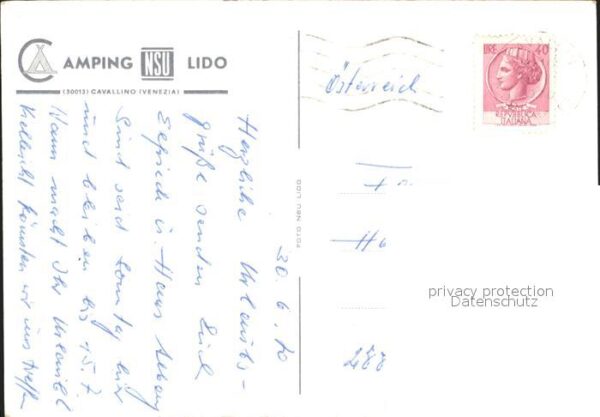 CAMPING NSU LIDO
(30013) CAVALLINO (VENEZIA)
30.6.70
Herzliche Urlaubs-
grüße senden Euch
u. Hans
Sind seid Sonntag hier
und bleiben bis 15.7.
Wann macht Ihr Urlaub?
Vielleicht könnten wir uns treffen
FOTO NSU LIDO
LIRE 40
REPVBBLICA
ITALIANA
Österreich
privacy protection
Datenschutz